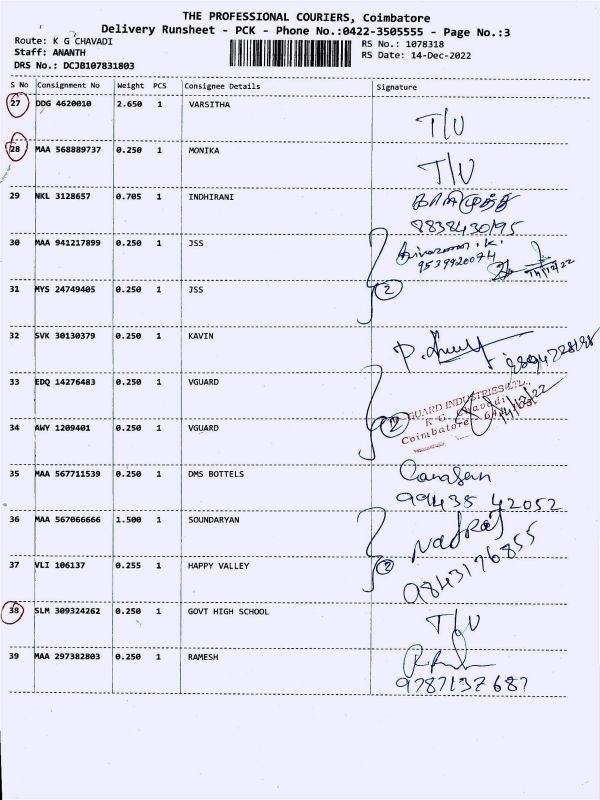 THE PROFESSIONAL COURIERS, Coimbatore
Delivery Runsheet - PCK - Phone No.:0422-3505555 - Page No.:3
Route: K G CHAVADI
Staff: ANANTH
DRS No.: DCJB107831803
RS No.: 1078318
RS Date: 14-Dec-2022
S No Consignment No Weight PCS Consignee Details Signature
27 DDG 4620010 2.650 1 VARSITHA T/U
28 MAA 568889737 0.250 1 MONIKA T/U
29 NKL 3128657 0.705 1 INDHIRANI
8838430195
30 MAA 941217899 0.250 1 JSS
9539920074 14/12/22
31 MYS 24749405 0.250 1 JSS 2
32 SVK 30130379 0.250 1 KAVIN
33 EDQ 14276483 0.250 1 VGUARD
GUARD INDUSTRIES LTD.,
K G Chavadi
Coimbatore
34 AWY 1209401 0.250 1 VGUARD
35 MAA 567711539 0.250 1 DMS BOTTELS
99435 42052
36 MAA 567066666 1.500 1 SOUNDARYAN
37 VLI 106137 0.255 1 HAPPY VALLEY 2
9843176855
38 SLM 309324262 0.250 1 GOVT HIGH SCHOOL T/U
39 MAA 297382803 0.250 1 RAMESH
9787137687